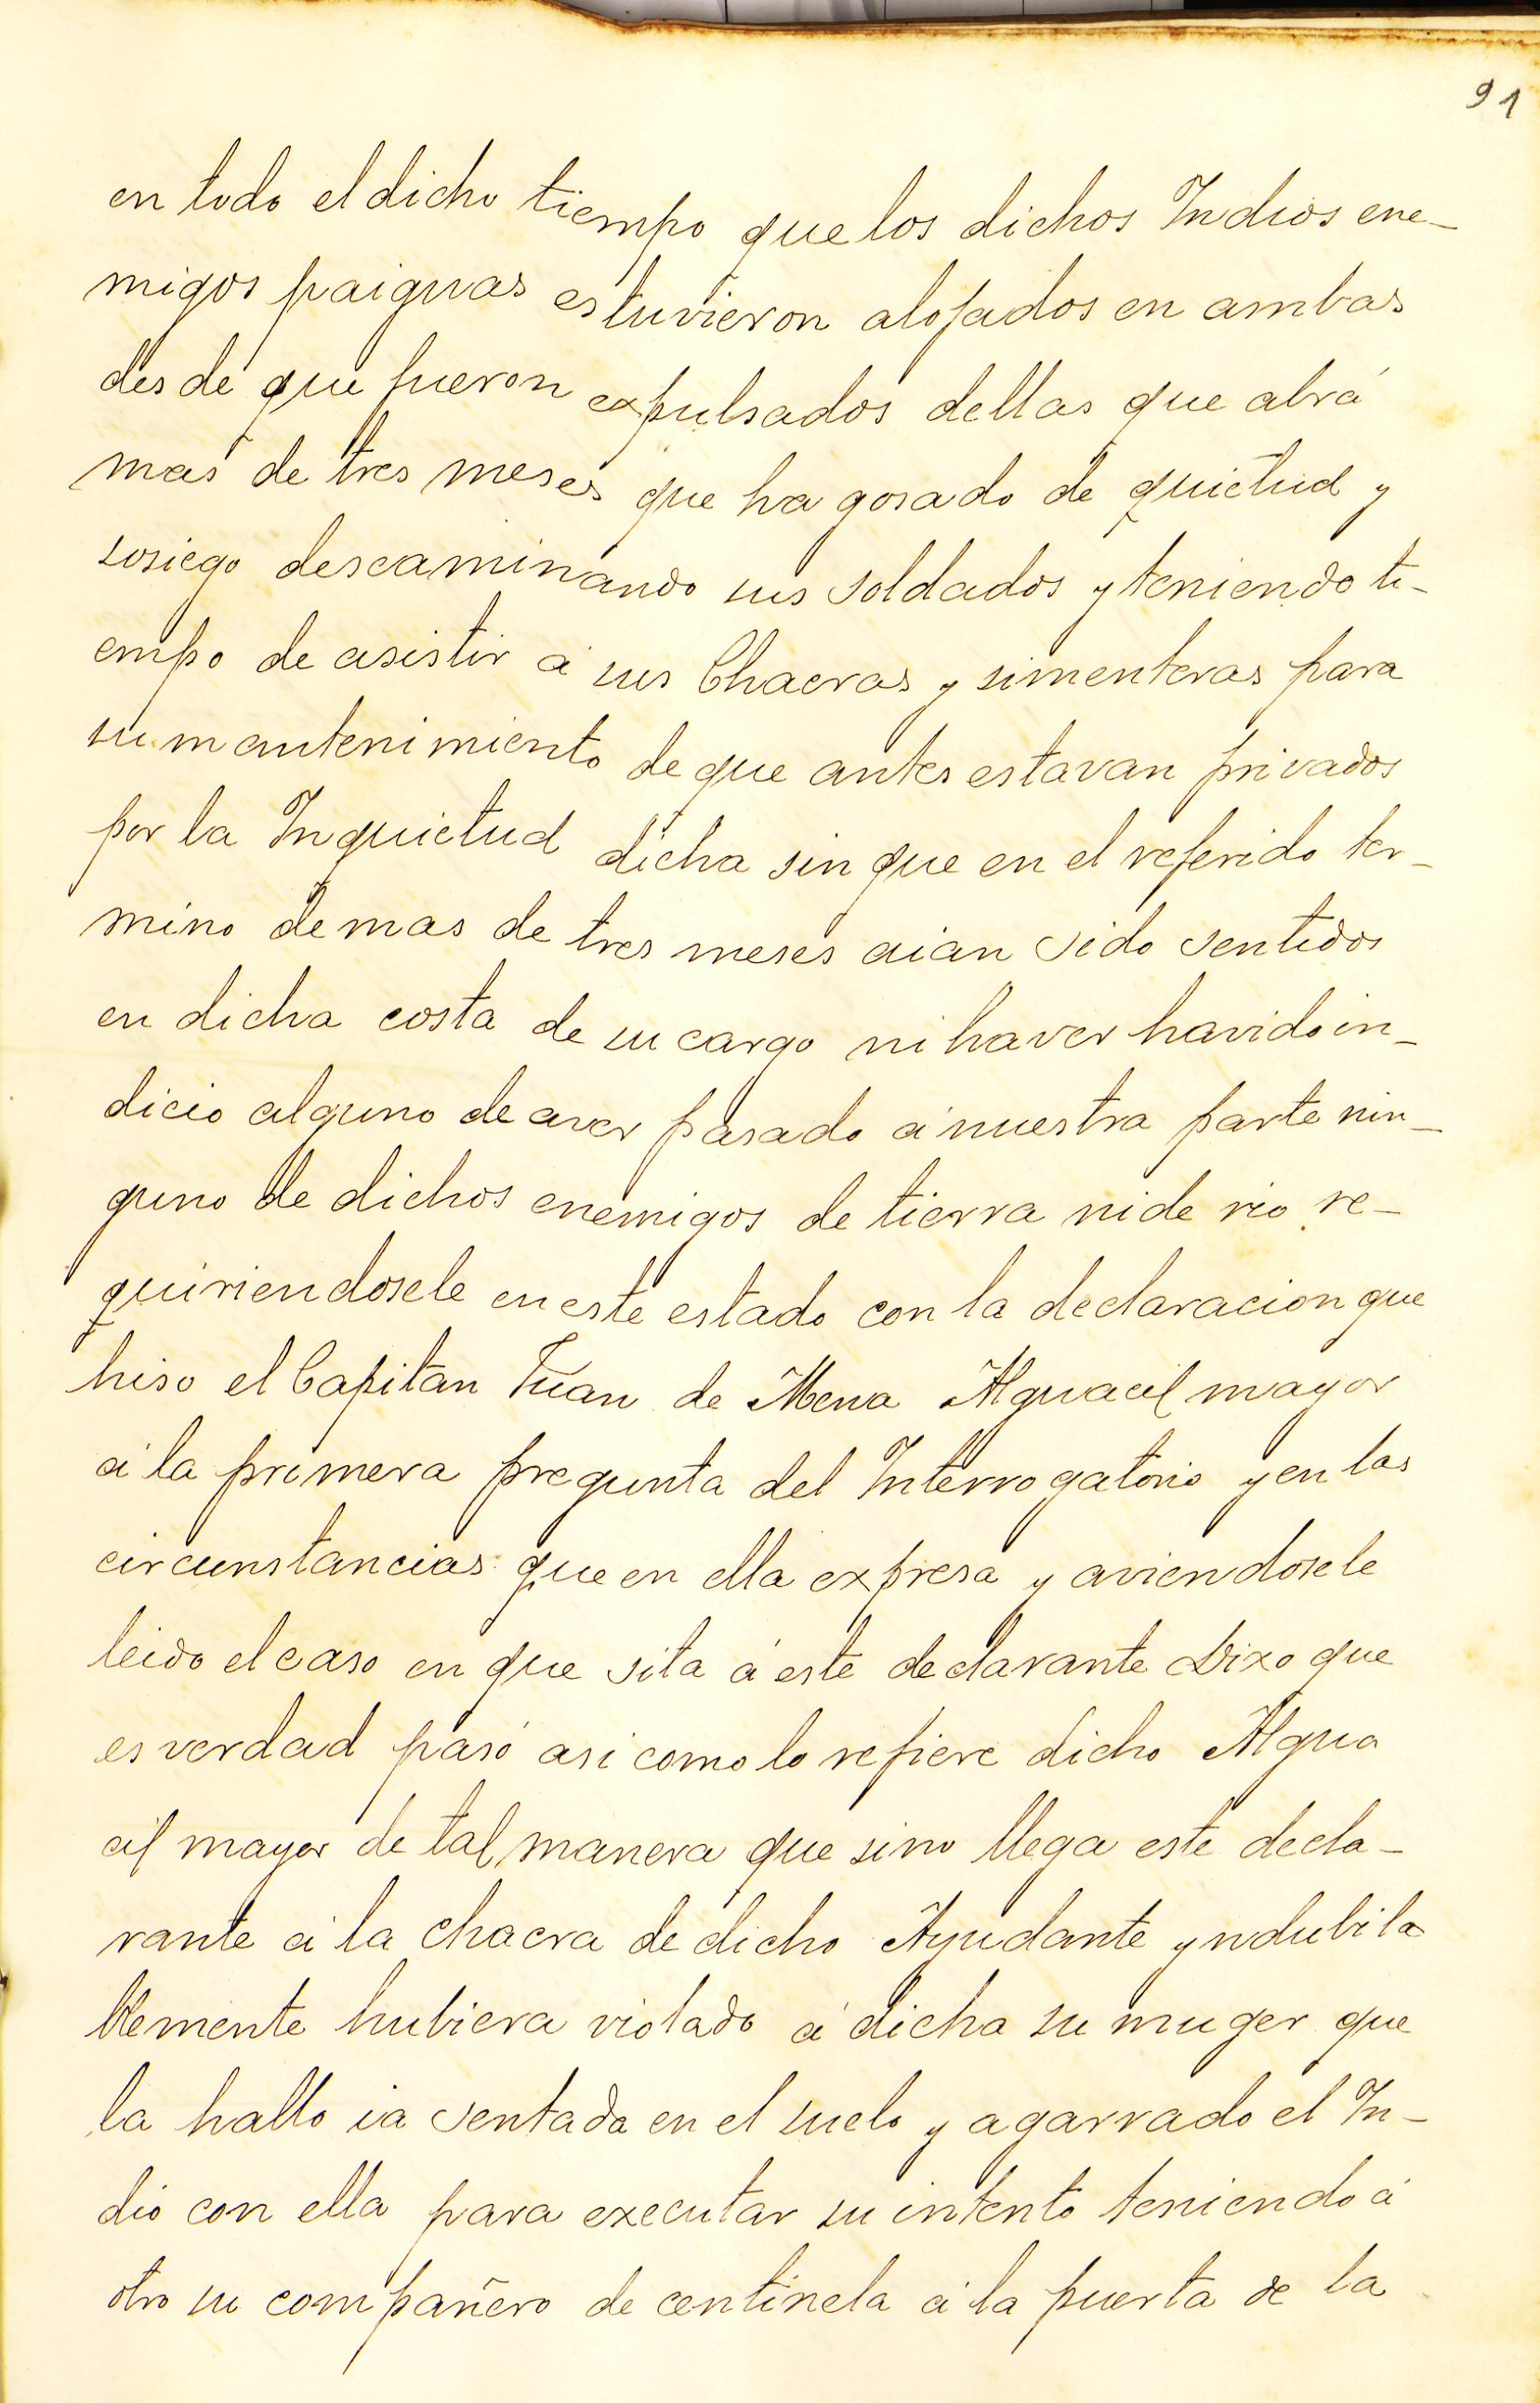 91
en todo el dicho tiempo que los dichos Indios ene-
migos paiguas estuvieron alojados en ambas
desde que fueron expulsados dellas que abrá
mas de tres meses que ha gosado de quietud y
sosiego descaminando sus soldados y teniendo ti-
empo de asistir á sus Chacras y simenteras para
su mantenimiento de que antes estavan privados
por la Inquietud dicha sin que en el referido ter-
mino de mas de tres meses aian sido sentidos
en dicha costa de su cargo ni haver havido in-
dicio alguno de aver pasado á nuestra parte nin-
guno de dichos enemigos de tierra ni de rio re-
quiriendosele en este estado con la declaracion que
hiso el Capitan Juan de Mena Alguacil mayor
á la primera pregunta del Interrogatorio y en las
circunstancias que en ella expresa y aviendosele
leido el caso en que sita á este declarante Dixo que
es verdad pasó asi como lo refiere dicho Algua
cil mayor de tal manera que sino llega este decla-
rante á la chacra de dicho Ayudante yndubila
blemente hubiera violado á dicha su muger que
la hallo ia sentada en el suelo y agarrado el In-
dio con ella para executar su intento teniendo á
otro su compañero de centinela á la puerta de la